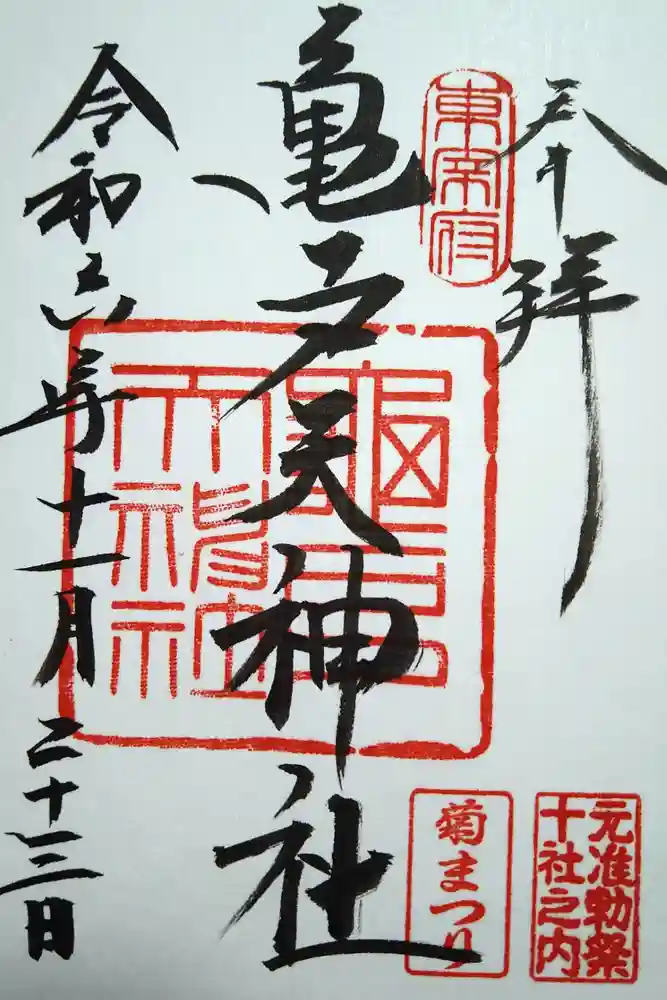 奉拝
東京府
亀戸天神社
亀戸
天神社
令和六年十一月二十三日
菊まつり
元准勅祭
十社之内